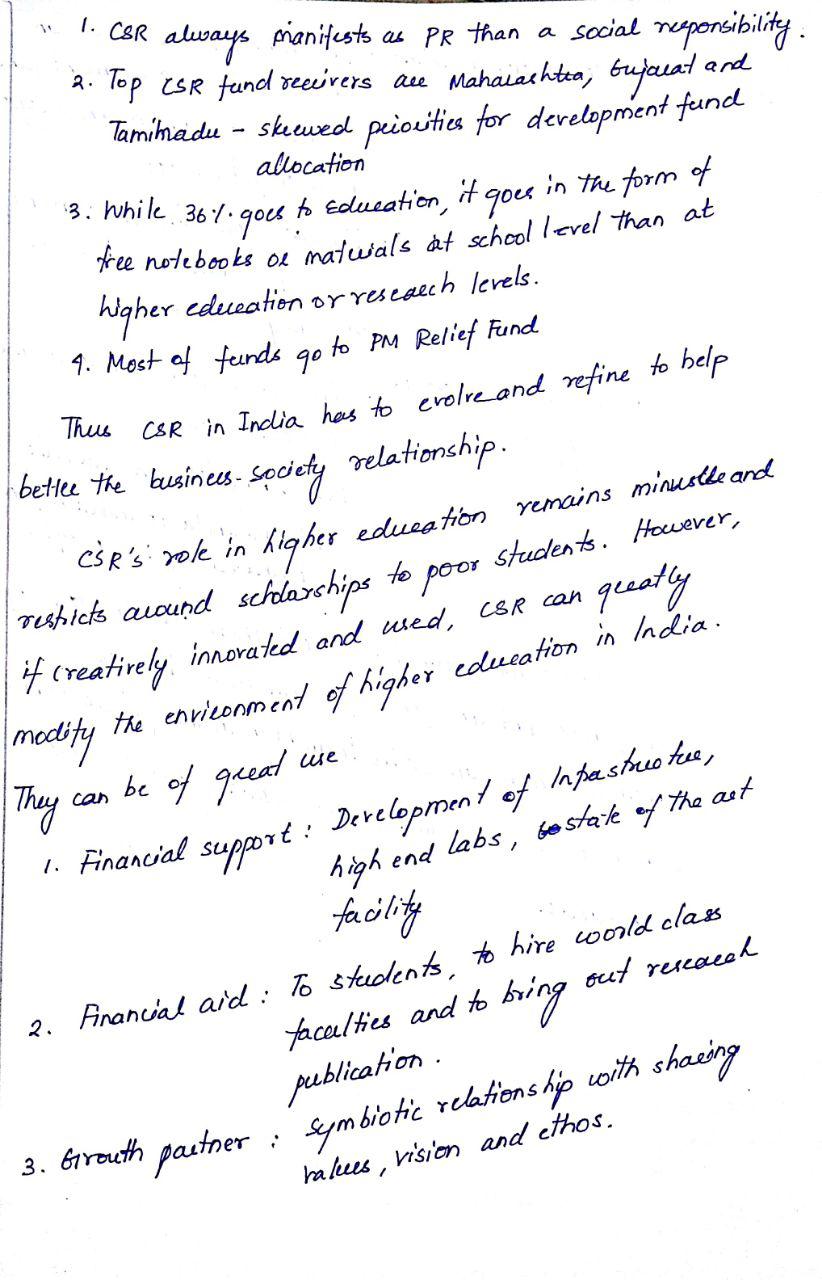 1. CSR always manifests as PR than a social responsibility.
2. Top CSR fund receivers are Maharashtra, Gujarat and
Tamilnadu - skewed priorities for development fund
allocation
3. While 36% goes to Education, it goes in the form of
free notebooks or materials at school level than at
higher education or research levels.
4. Most of funds go to PM Relief Fund
Thus CSR in India has to evolve and refine to help
better the business-society relationship.
CSR's role in higher education remains minuscle and
restricts around scholarships to poor students. However,
if creatively innovated and used, CSR can greatly
modify the environment of higher education in India.
They can be of great use
1. Financial support : Development of Infrastructure,
high end labs, state of the art
facility
2. Financial aid : To students, to hire world class
faculties and to bring out research
publication.
3. Growth partner : Symbiotic relationship with sharing
values, vision and ethos.